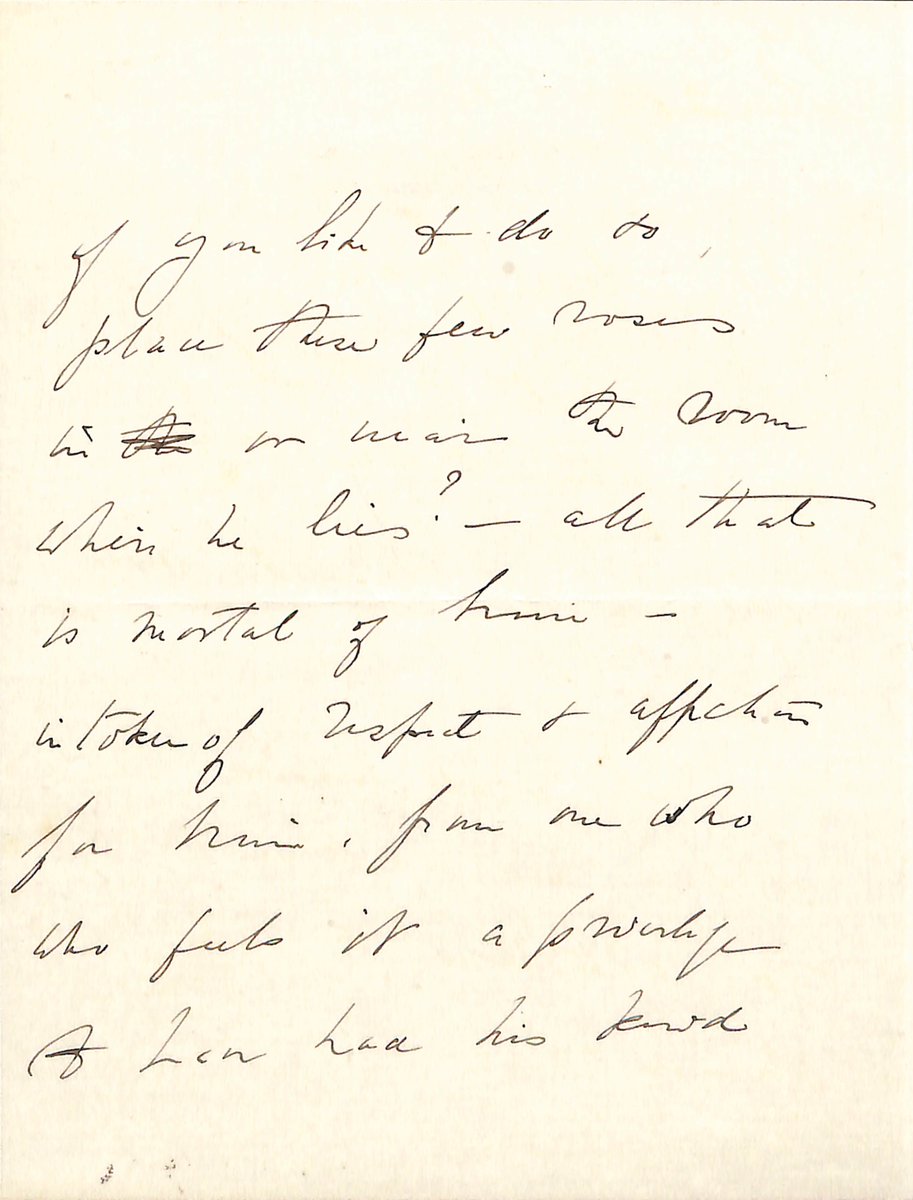 if you like to do so,
place these few roses
in the or near the room
where he lies? — all that
is mortal of him —
in token of respect & affection
for him, from one who
who feels it a privilege
to have had his kind